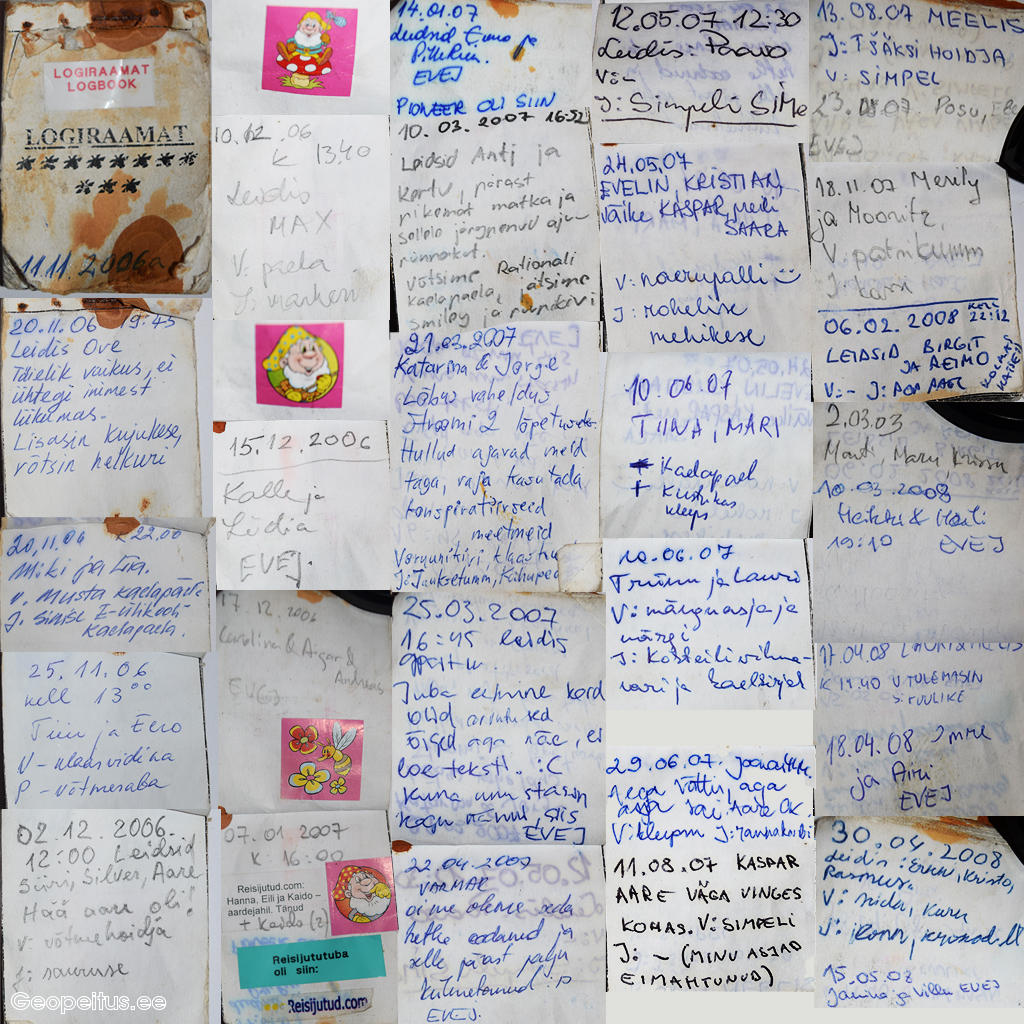 LOGIRAAMAT
LOGBOOK
LOGIRAAMAT
11.11.2006a
20.11.06 19:45
Leidis Ove
Täielik vaikus, ei
ühtegi inimest
liikumas.
Lisasin kujukese,
võtsin helkuri
20.11.06 22.00
Miki ja
v. Musta kaelapaela
J. Sinise E-ülikooli
kaelapaela.
25.11.06
kell 13⁰⁰
Tiiu ja Eero
V - klaasvidina
P - võtmeraha
02.12.2006.
12:00 Leidsid
Siiri, Silver, Aare
Hää aare oli!
V: võtmehoidja
J: sauruse
10.12.06
K 13.40
Leidis
MAX
V: paela
J: markeri
15.12.2006
Kalle ja
Lüdia
EVEJ.
17.12.2006
Carolina & Aigar &
Andreas
EVEJ
07.01.2007
K: 16:00
Reisijutud.com:
Hanna, Eili ja Kaido –
aardejahil. Tänud
+ Kaido (2)
Reisijututuba
oli siin:
Reisijutud.com
14.01.07
Leidsid Eimo ja
EVEJ
PIONEER OLI SIIN
10.03.2007 16:52
Leidsid Anti ja
Kertu, pärast
pikemat matka ja
sellele järgnenud aju-
rünnakut.
Võtsime Rationali
kaelapaela, jätsime
smiley ja rännukivi
21.03.2007
Katarina & Jörge
Lõbus vaheldus
Stroomi 2 lõpetuseks.
Hullud ajavad meid
taga, raja kasutada
konspiratiivseid
meetmeid
J: Jänksetumm, Kihupea
25.03.2007
16:45 leidis
gpeitu.
Juba eelmine kord
olid arvutused
õiged aga näe, ei
loe teksti. :C
kuna unustasin
kogu nänni, siis
EVEJ
22.04.2007
VARMAR
oi me oleme seda
hetke oodanud ja
selle pärast palju
EVEJ.
12.05.07 12:30
Leidis: Paavo
V: -
J: Simpeli SIMe
24.05.07
EVELIN, KRISTIAN,
väike KASPAR, meie
SAARA
V: naerupalli
J: rohelise
mehikese
10.06.07
TIINA, MARI
- kaelapael
+ Kustukas
kleeps
10.06.07
Triinu ja Lauri
V: mänguasja ja
märgi
J: Kokteilivihma-
vari ja kaelasipael
29.06.07. Joonas
aega võttis, aga
asja sai. Aare OK.
V: kleepsu J: rannakarbi
11.08.07 KASPAR
AARE VÄGA VINGES
KOHAS. V: SIMPELI
J: – (MINU ASJAD
EI MAHTUNUD)
13.08.07 MEELIS
J: TŠÄKSI HOIDJA
V: SIMPEL
23. .07 Posu,
EVEJ
18.11.07 Merily
ja Moonika
V: patrikumm
J: lamm
06.02.2008 KELL 22:12
LEIDSID BIRGIT
JA REIMO
V: - J:
2.03.03
10.03.2008
Heikki & Heili
19:10 EVEJ
17.04.08
K 19.40 V TULEMASIN
18.04.08 Imre
ja Airi
EVEJ
30.04.2008
Leidis: Erkki, Krista,
Rasmus.
V: sida, karu
J: ikoon, krokodill
15.05.08
Janina ja Villu EVEJ
Geopeitus.ee